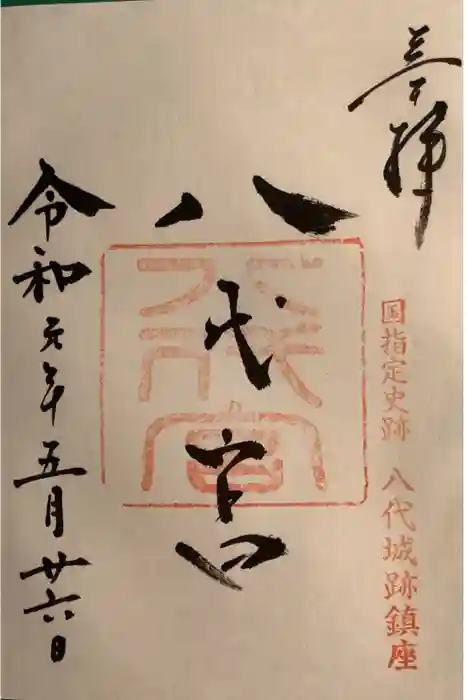 奉拝
国指定史跡 八代城跡鎮座
八代宮
八代宮
令和元年五月廿六日